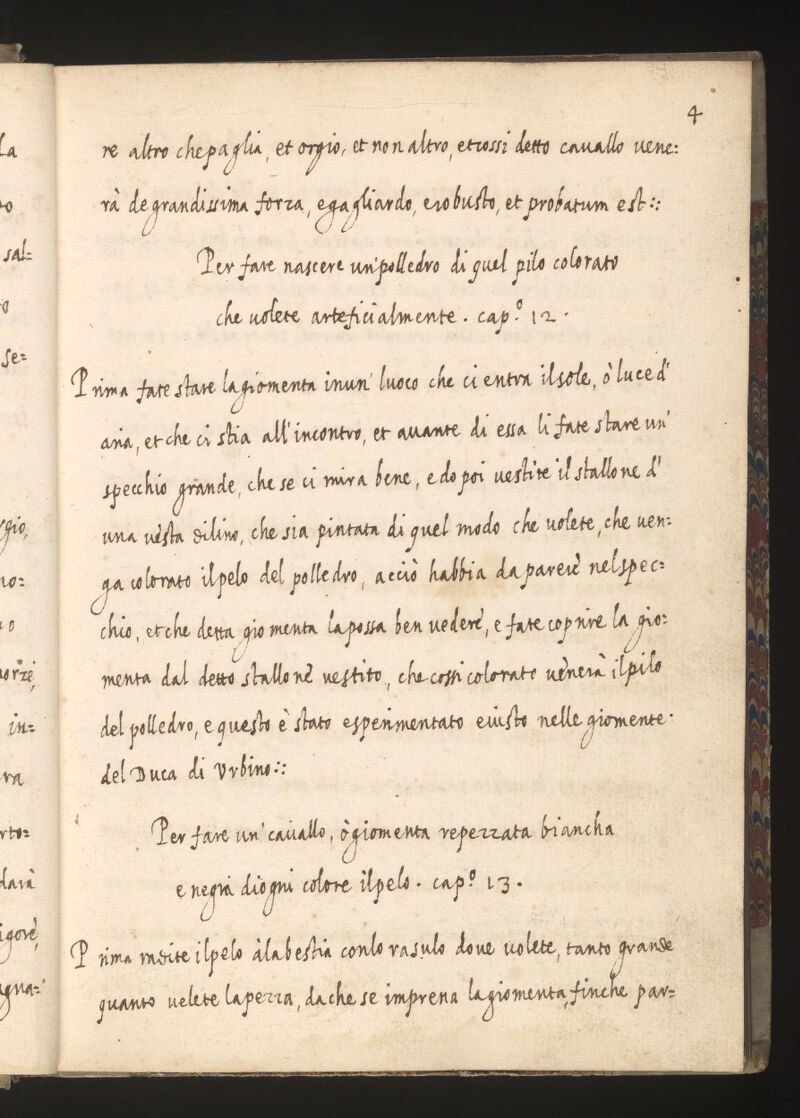 4
re altro che paglia, et orgio, et non altro, et cossi detto cauallo uene:
rà de grandissima forza, e gagliardo, e robusto, et probatum est ::
Per fare nascere un' polledro di quel pilo colorato
che uolete arteficialmente. cap.º 12.
Prima fate stare la giomenta in un' luoco che ci entra il sole, ò luce d'
aria, et che ci stia all'incontro, et auante di essa li fate stare un'
specchio grande, che se ci mira bene, e do poi uestite il stallone d'
una uèsta di lino, che sia pintata di quel modo che uolete, che uen:
ga colorato il pelo del polledro, acciò habbia da parere nel spec:
chio, et che detta giomenta la possa ben uedere, e fate coprire la gio:
menta dal detto stallone uestito, che cossi colorato uènerà il pilo
del polledro, e questo è stato esperimentato e uisto nelle giomente
del Duca di Vrbino ::
Per fare un' cauallo, ò giomenta repezzata biancha
e negra di ogni colore il pelo. cap.º 13.
Prima radite il pelo à la bestia con lo rasulo doue uolete, tanto grande
quanto uelete la pezza, da che se imprena la giomenta, finche par=
La
to
sal=
o
se=
gio,
no=
o
in=
ra
rto=
darà
igore,
agna=